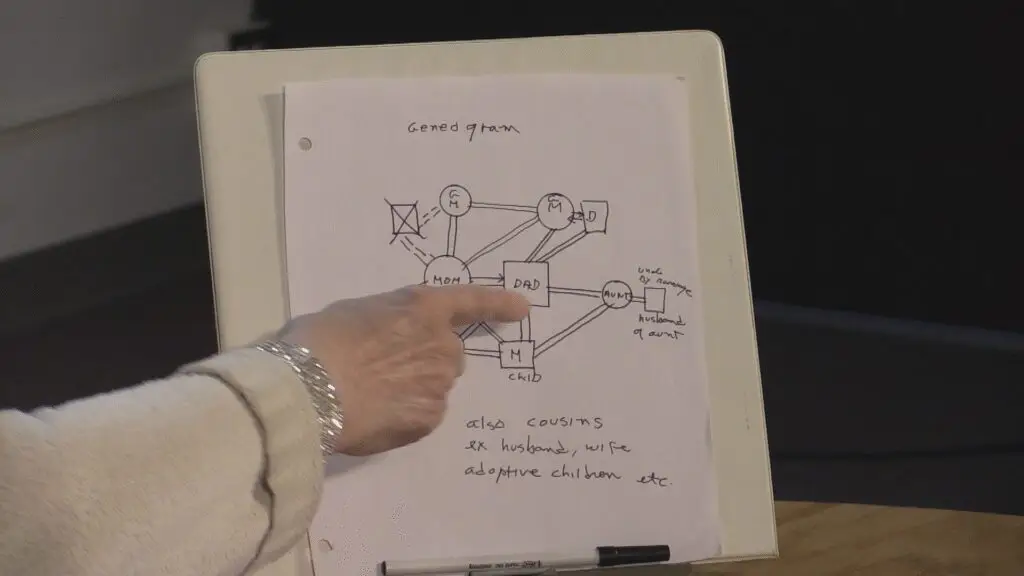 Genedgram
G
M
G
M
D
MOM
DAD
AUNT
uncle
by marriage
husband
of aunt
M
child
also cousins
ex husband, wife
adoptive children etc.